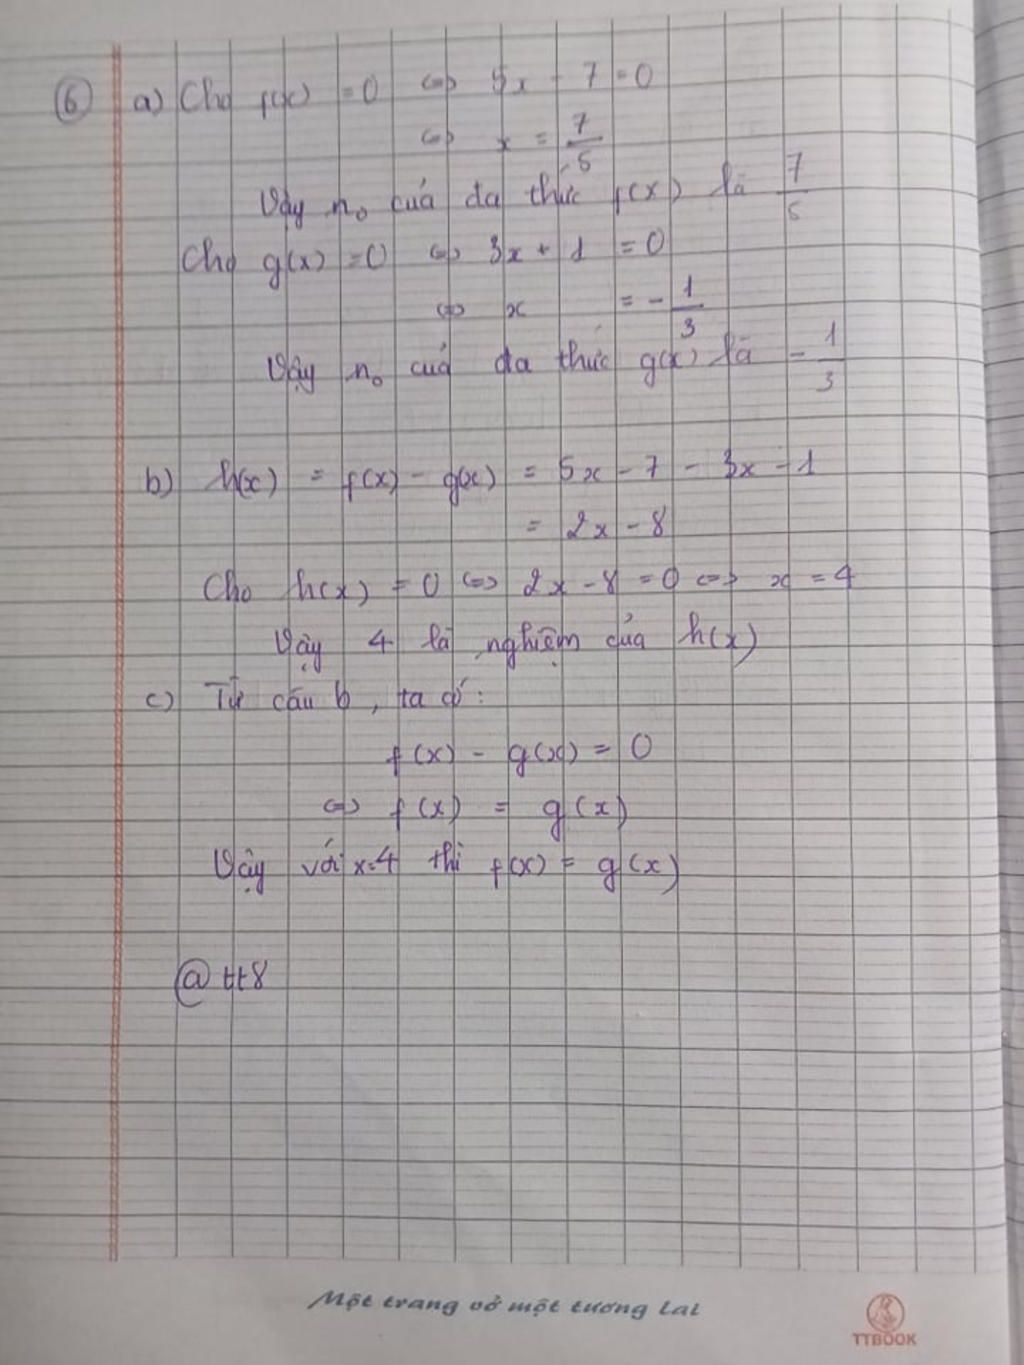 6 a) Cho f(x) = 0 <=> 5x - 7 = 0
<=> x = 7/5
Vậy n₀ của đa thức f(x) là 7/5
Cho g(x) = 0 <=> 3x + 1 = 0
<=> x = - 1/3
Vậy n₀ của đa thức g(x) là - 1/3
b) h(x) = f(x) - g(x) = 5x - 7 - 3x - 1
= 2x - 8
Cho h(x) = 0 <=> 2x - 8 = 0 <=> x = 4
Vậy 4 là nghiệm của h(x)
c) Từ câu b, ta có:
f(x) - g(x) = 0
<=> f(x) = g(x)
Vậy với x=4 thì f(x) = g(x)
@ tt8
Một trang vở một tương lai
TTBOOK